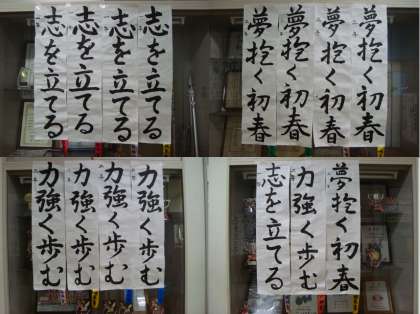 志を立てる
志を立てる
志を立てる
志を立てる
夢抱く初春
夢抱く初春
夢抱く初春
夢抱く初春
力強く歩む
力強く歩む
力強く歩む
力強く歩む
夢抱く初春
力強く歩む
志を立てる